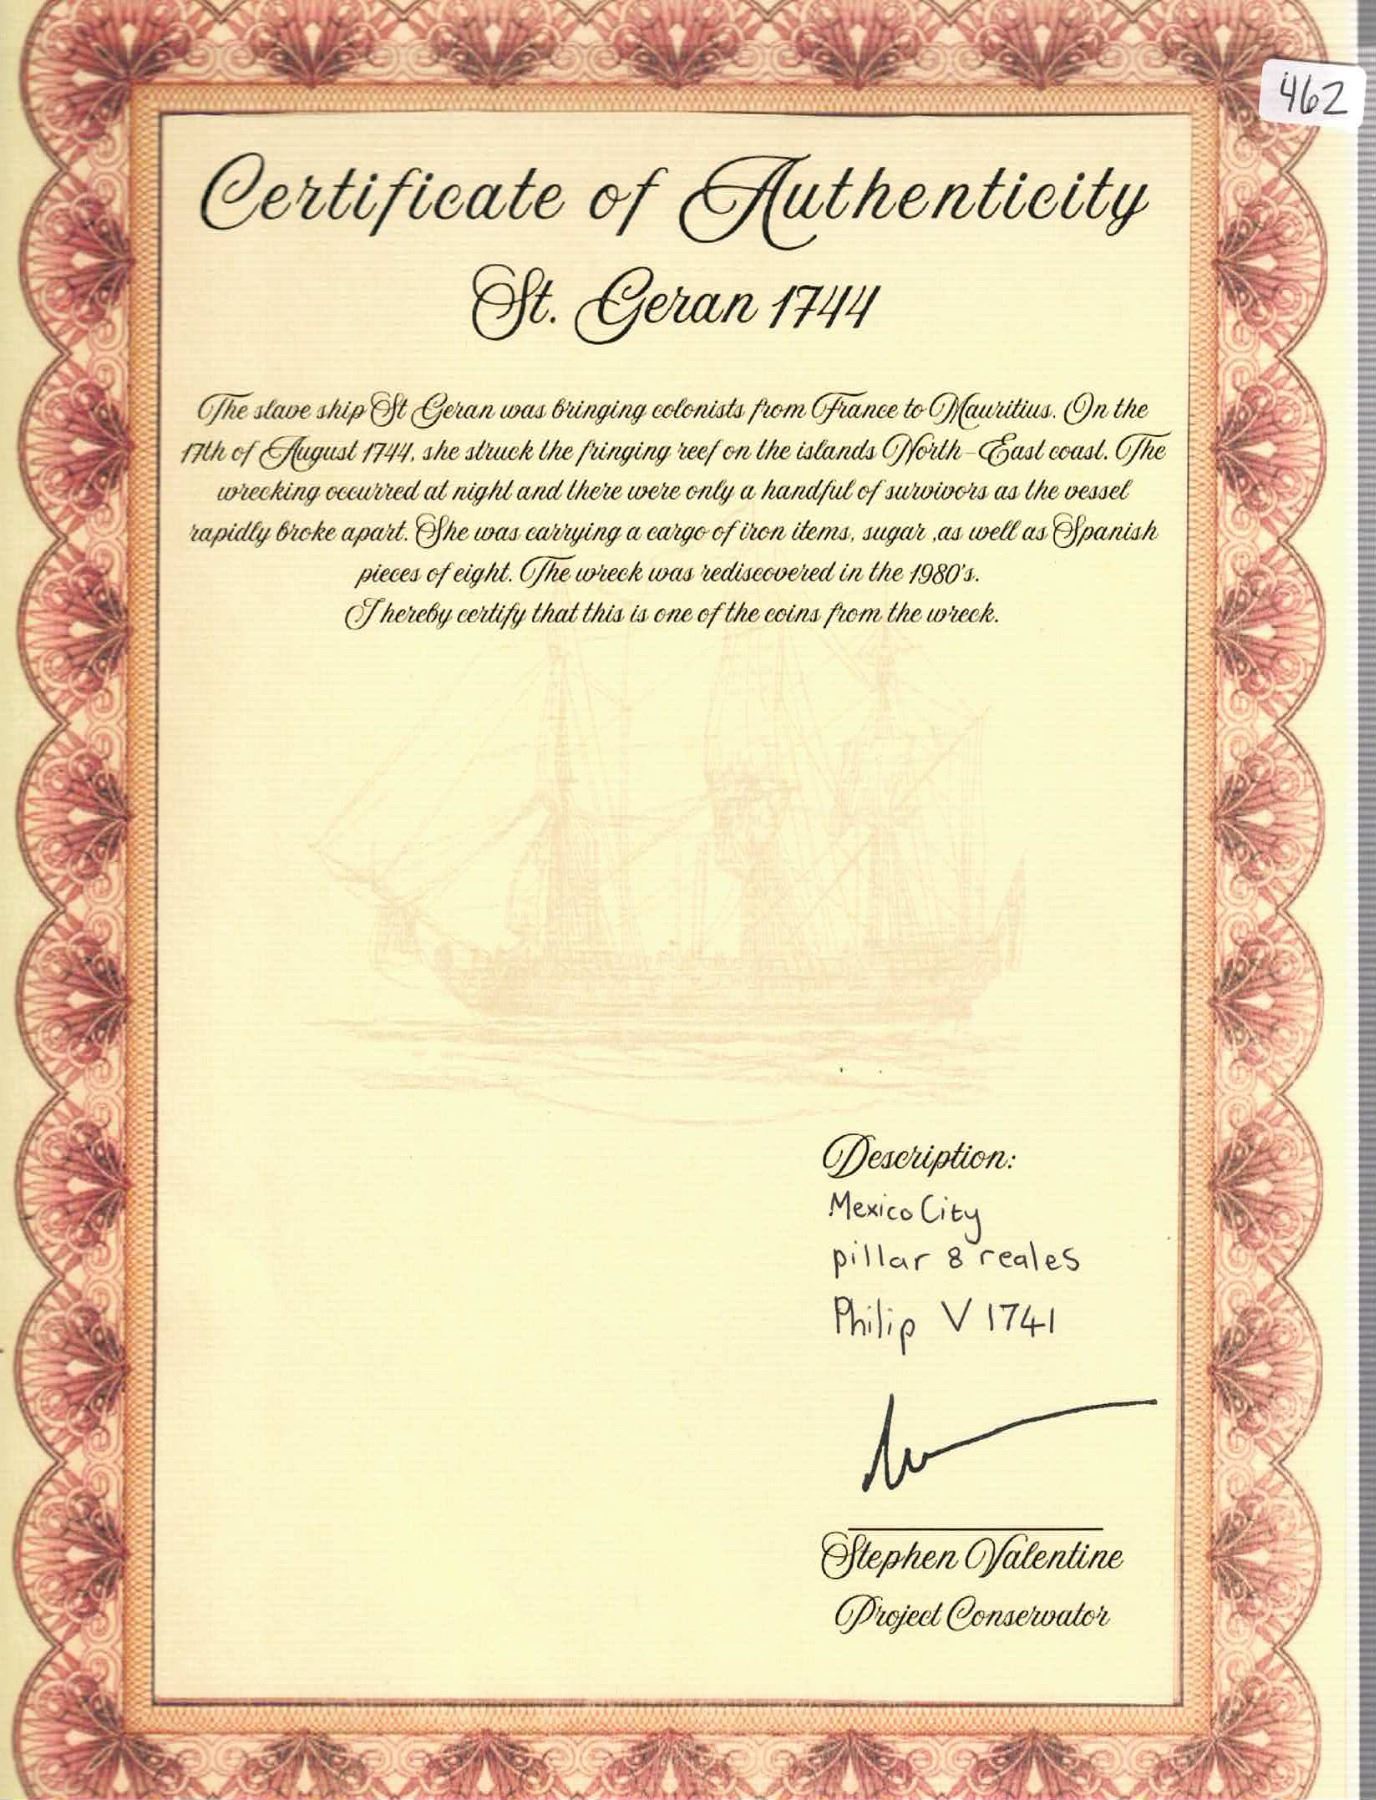 462
Certificate of Authenticity
St. Geran 1744
The slave ship St Geran was bringing colonists from France to Mauritius. On the
17th of August 1744, she struck the fringing reef on the islands North-East coast. The
wrecking occurred at night and there were only a handful of survivors as the vessel
rapidly broke apart. She was carrying a cargo of iron items, sugar ,as well as Spanish
pieces of eight. The wreck was rediscovered in the 1980's.
I hereby certify that this is one of the coins from the wreck.
Description:
Mexico City
pillar 8 reales
Philip V 1741
Stephen Valentine
Project Conservator